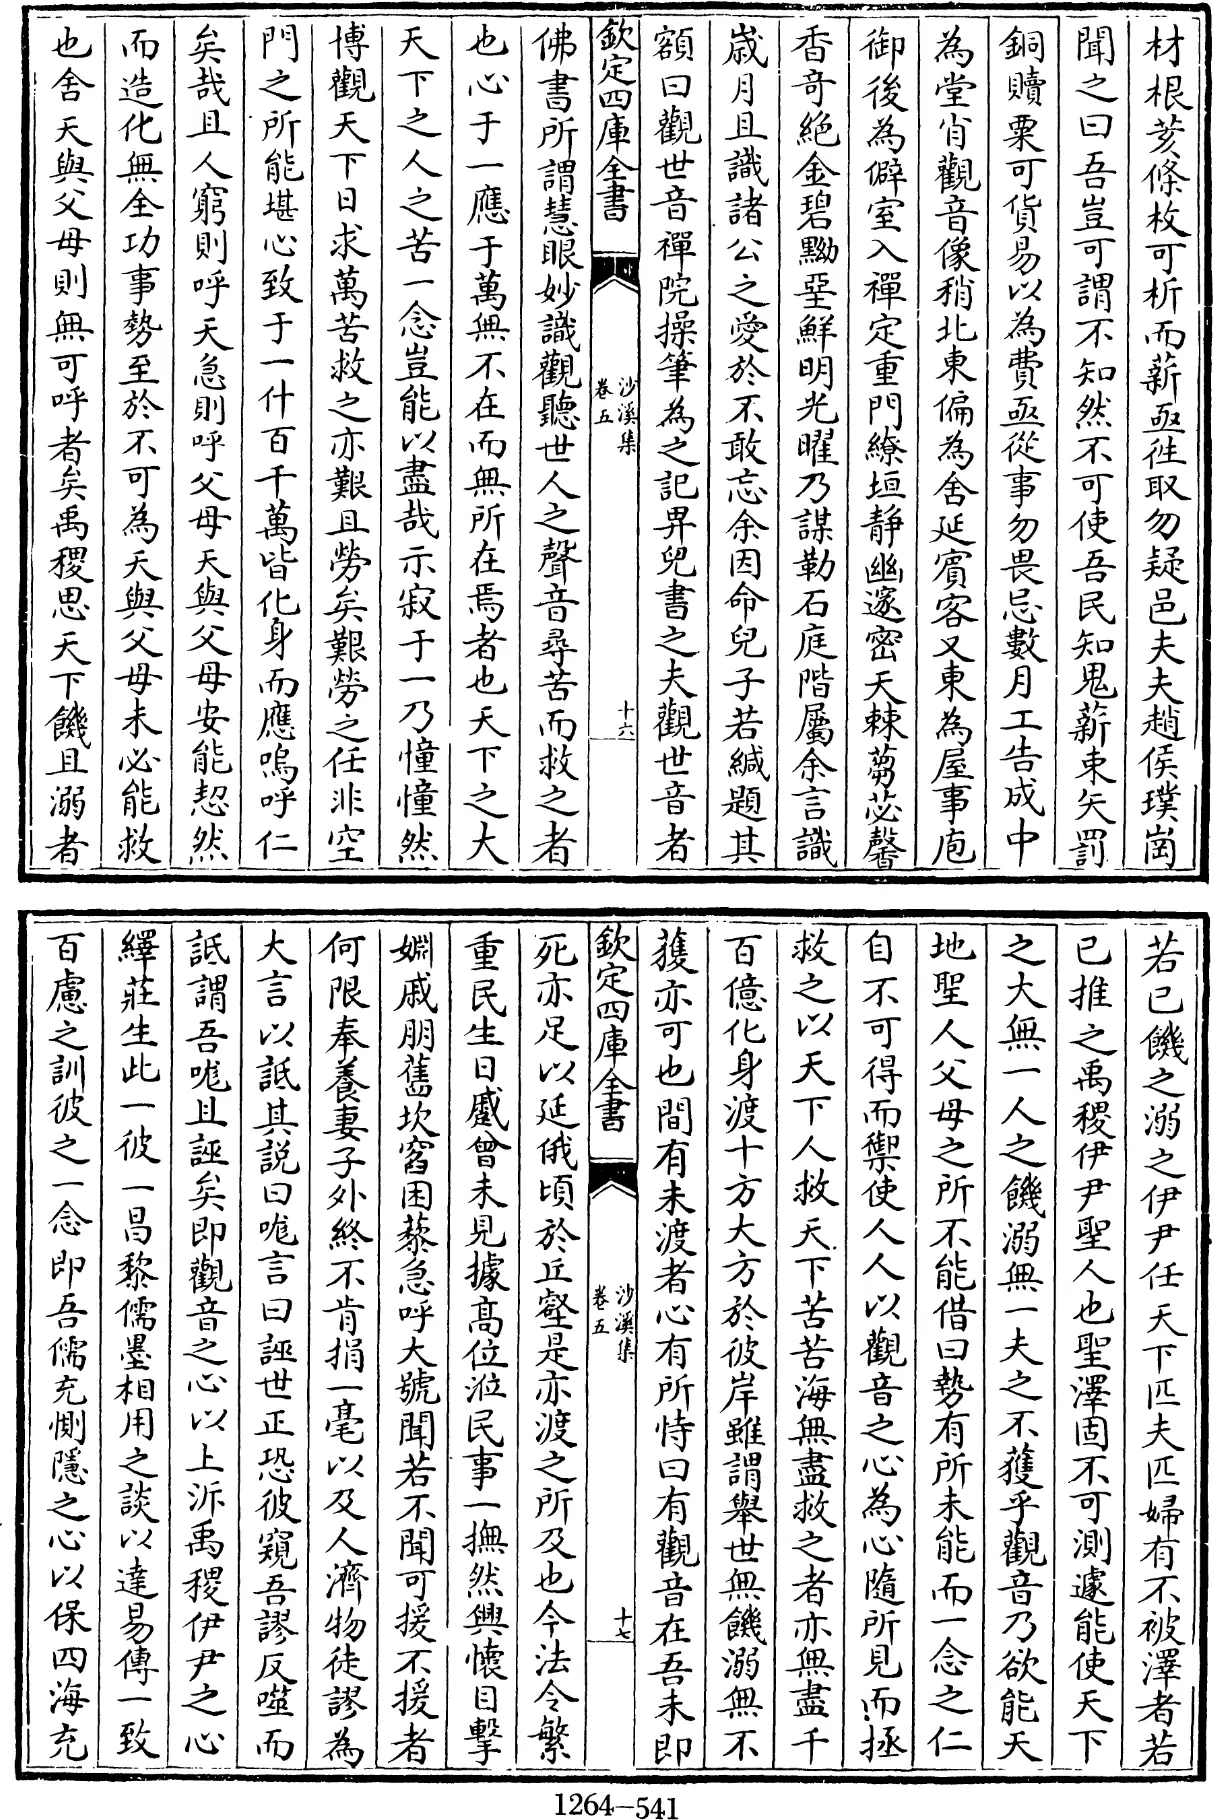 材根荄條枚可析而薪亟徃取勿疑邑大夫趙侯璞崗
聞之曰吾豈可謂不知然不可使吾民知鬼薪束矢罰
銅贖粟可貨易以為費亟從事勿畏忌數月工告成中
為堂肖觀音像稍北東偏為舍延賓客又東為屋事庖
御後為僻室入禪定重門繚垣靜幽邃密天棘蒭苾馨
香竒絶金碧黝堊鮮明光曜乃謀勒石庭階屬余言識
嵗月且識諸公之愛於不敢忘余因命兒子若緘題其
額曰觀世音禪院操筆為之記畀兒書之夫觀世音者
欽定四庫全書
沙溪集
卷五
十六
佛書所謂慧眼妙識觀聽世人之聲音尋苦而救之者
也心于一應于萬無不在而無所在焉者也天下之大
天下之人之苦一念豈能以盡哉示寂于一乃憧憧然
博觀天下日求萬苦救之亦艱且勞矣艱勞之任非空
門之所能堪心致于一什百千萬皆化身而應嗚呼仁
矣哉且人窮則呼天急則呼父母天與父母安能恝然
而造化無全功事勢至於不可為天與父母未必能救
也舍天與父母則無可呼者矣禹稷思天下饑且溺者
若已饑之溺之伊尹任天下匹夫匹婦有不被澤者若
已推之禹稷伊尹聖人也聖澤固不可測遽能使天下
之大無一人之饑溺無一夫之不獲乎觀音乃欲能天
地聖人父母之所不能借曰勢有所未能而一念之仁
自不可得而禦使人人以觀音之心為心隨所見而拯
救之以天下人救天下苦苦海無盡救之者亦無盡千
百億化身渡十方大方於彼岸雖謂舉世無饑溺無不
獲亦可也間有未渡者心有所恃曰有觀音在吾未即
欽定四庫全書
沙溪集
卷五
十七
死亦足以延俄頃於丘壑是亦渡之所及也今法令繁
重民生日蹙曾未見據髙位涖民事一撫然興懷目擊
婣戚朋舊坎窞困蔾急呼大號聞若不聞可援不援者
何限奉養妻子外終不肯捐一毫以及人濟物徒謬為
大言以詆其説曰唯言曰誣世正恐彼窺吾謬反噬而
詆謂吾唯且誣矣即觀音之心以上泝禹稷伊尹之心
繹莊生此一彼一昌黎儒墨相用之談以達易傳一致
百慮之訓彼之一念即吾儒充惻隱之心以保四海充
1264-541